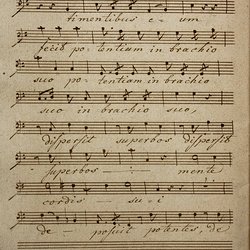 timentibus e - um
fecit po - tentium in brachio
suo po - tentiam in brachio
suo in brachio suo,
dispersit superbos dispersit
superbos - mente
cordis - su - i
de - posuit potentes, de